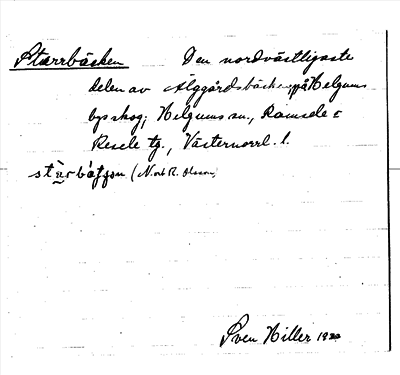 Starrbäcken Den nordvästligaste
delen av Älggårdsbäcken, på Helgums
bys skog; Helgums sn, Ramsele &
Resele tg., Västernorrl. l.
(Nort R. Olsson)
Sven Hiller 19